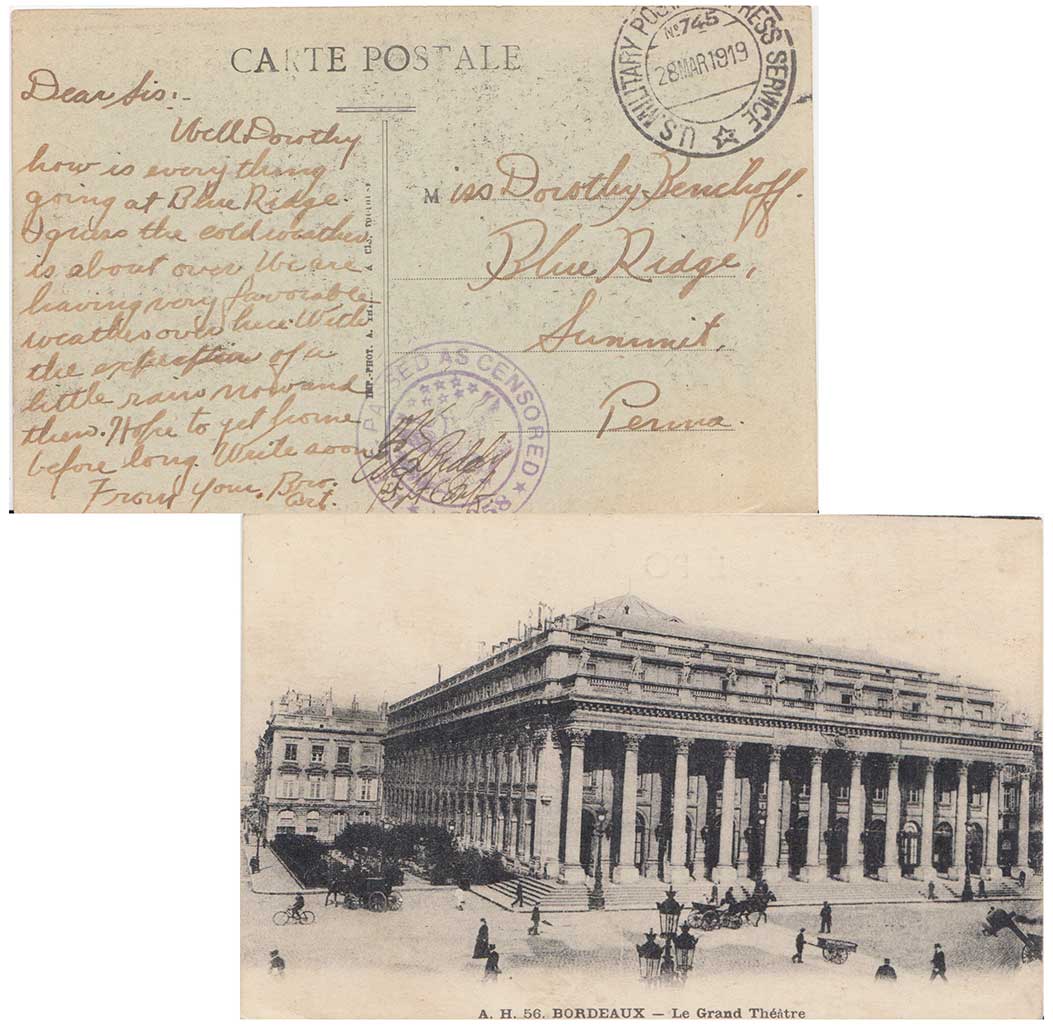 CARTE POSTALE
U.S. MILITARY POSTAL EXPRESS SERVICE
No 745
28 MAR 1919
Dear Sis:-
Well Dorothy
how is everything
going at Blue Ridge.
I guess the cold weather
is about over We are
having very favorable
weather over here. With
the expection of a
little rain now and
then. Hope to get home
before long. Write soon
From your. Bro.
Art.
IMP.-PHOT. A.
Miss Dorothy Benchoff.
Blue Ridge,
Summit,
Penna.
PASSED AS CENSORED
OK
A. H. 56. BORDEAUX — Le Grand Théâtre